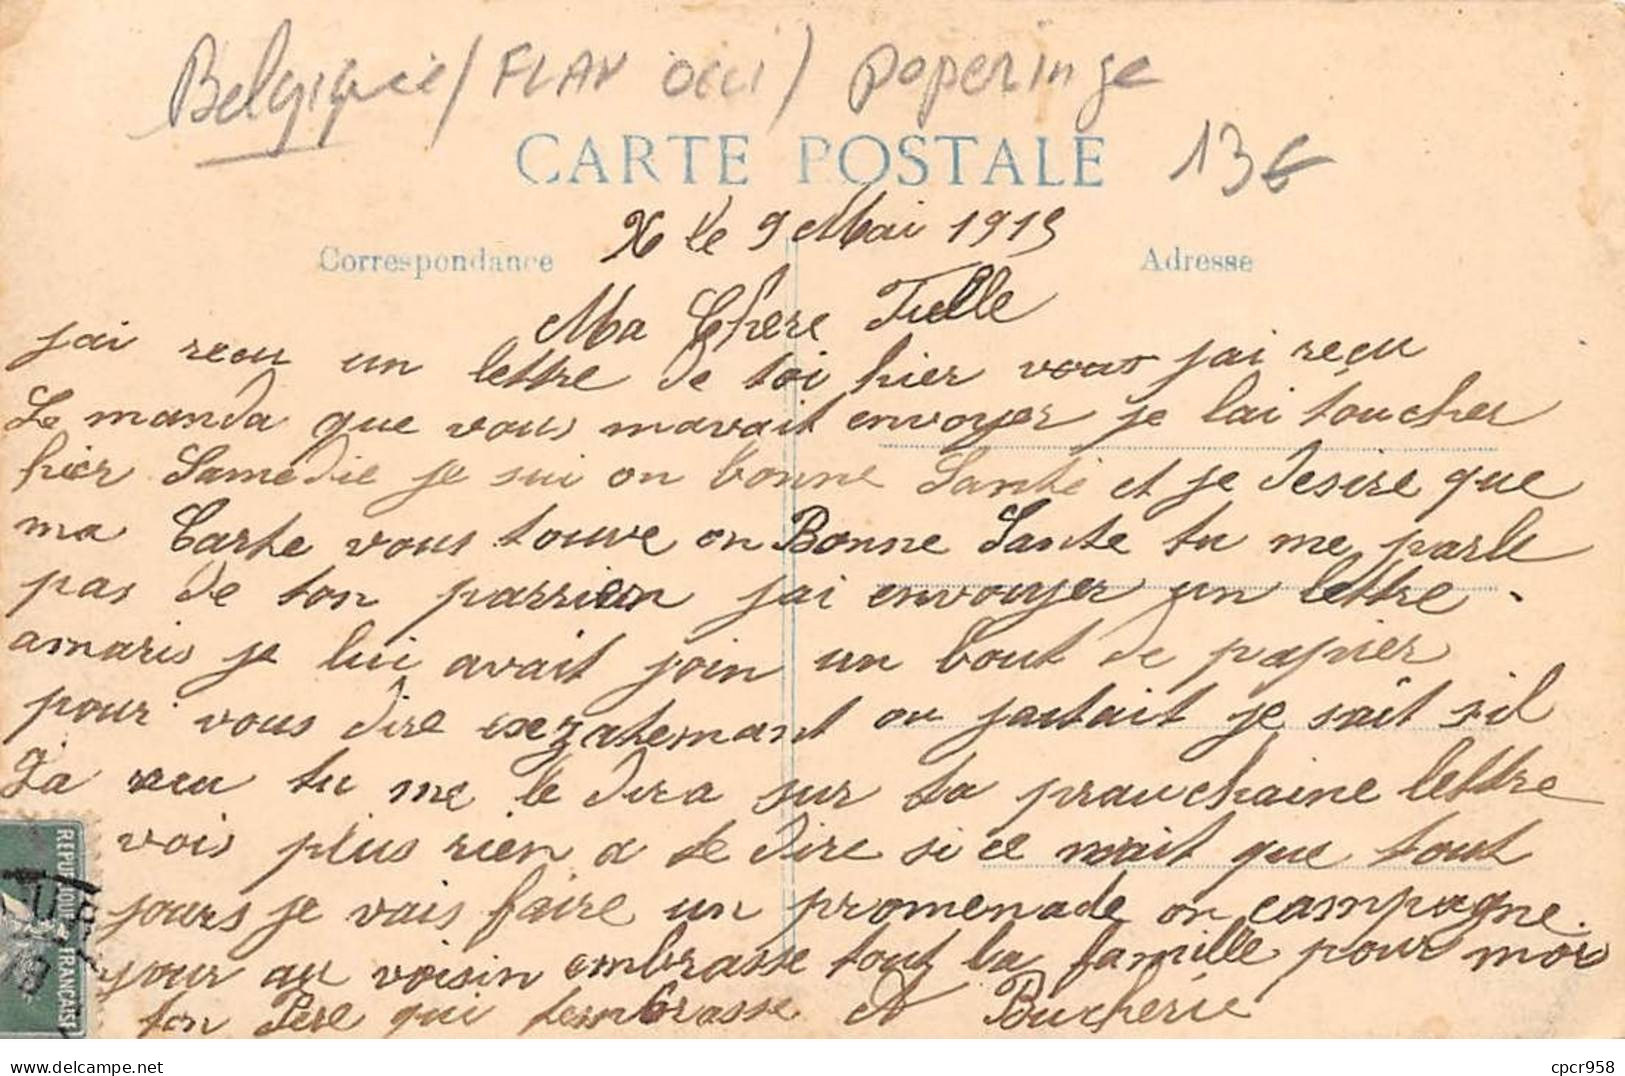 Belgique (FLAN OCCI) poperinge
CARTE POSTALE
13€
X le 9 Mai 1915
Correspondance
Adresse
Ma Chere Fielle
jai recu un lettre de toi hier vous jai reçu
Le manda que vous mavait envoyer je lai toucher
hier Samedie je sui on bonne Santé et je desire que
ma Carte vous touve on Bonne Sante tu me parle
pas de ton parrien jai envouyer un lettre
amaris je lui avait join un bout de papier
pour vous dire exzatemant ou jaitait je sait sil
la recu tu me le dira sur ta prauchaine lettre
vois plus rien a te dire si ce nait que tout
jours je vais faire un promenade on campagne
jour au voisin embrasse tout la famille pour moi
ton Père qui tembrasse A Bucherie
REPUBLIQUE FRANÇAISE
cpcr958